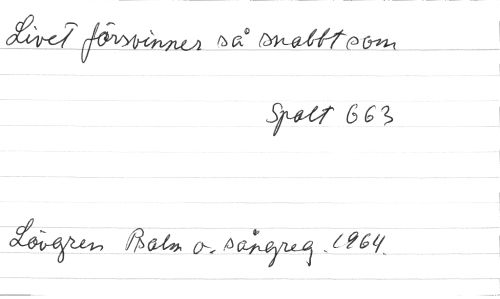 Livet försvinner så snabbt som
Spalt 663
Lövgren Psalm o. sångreg. 1964.